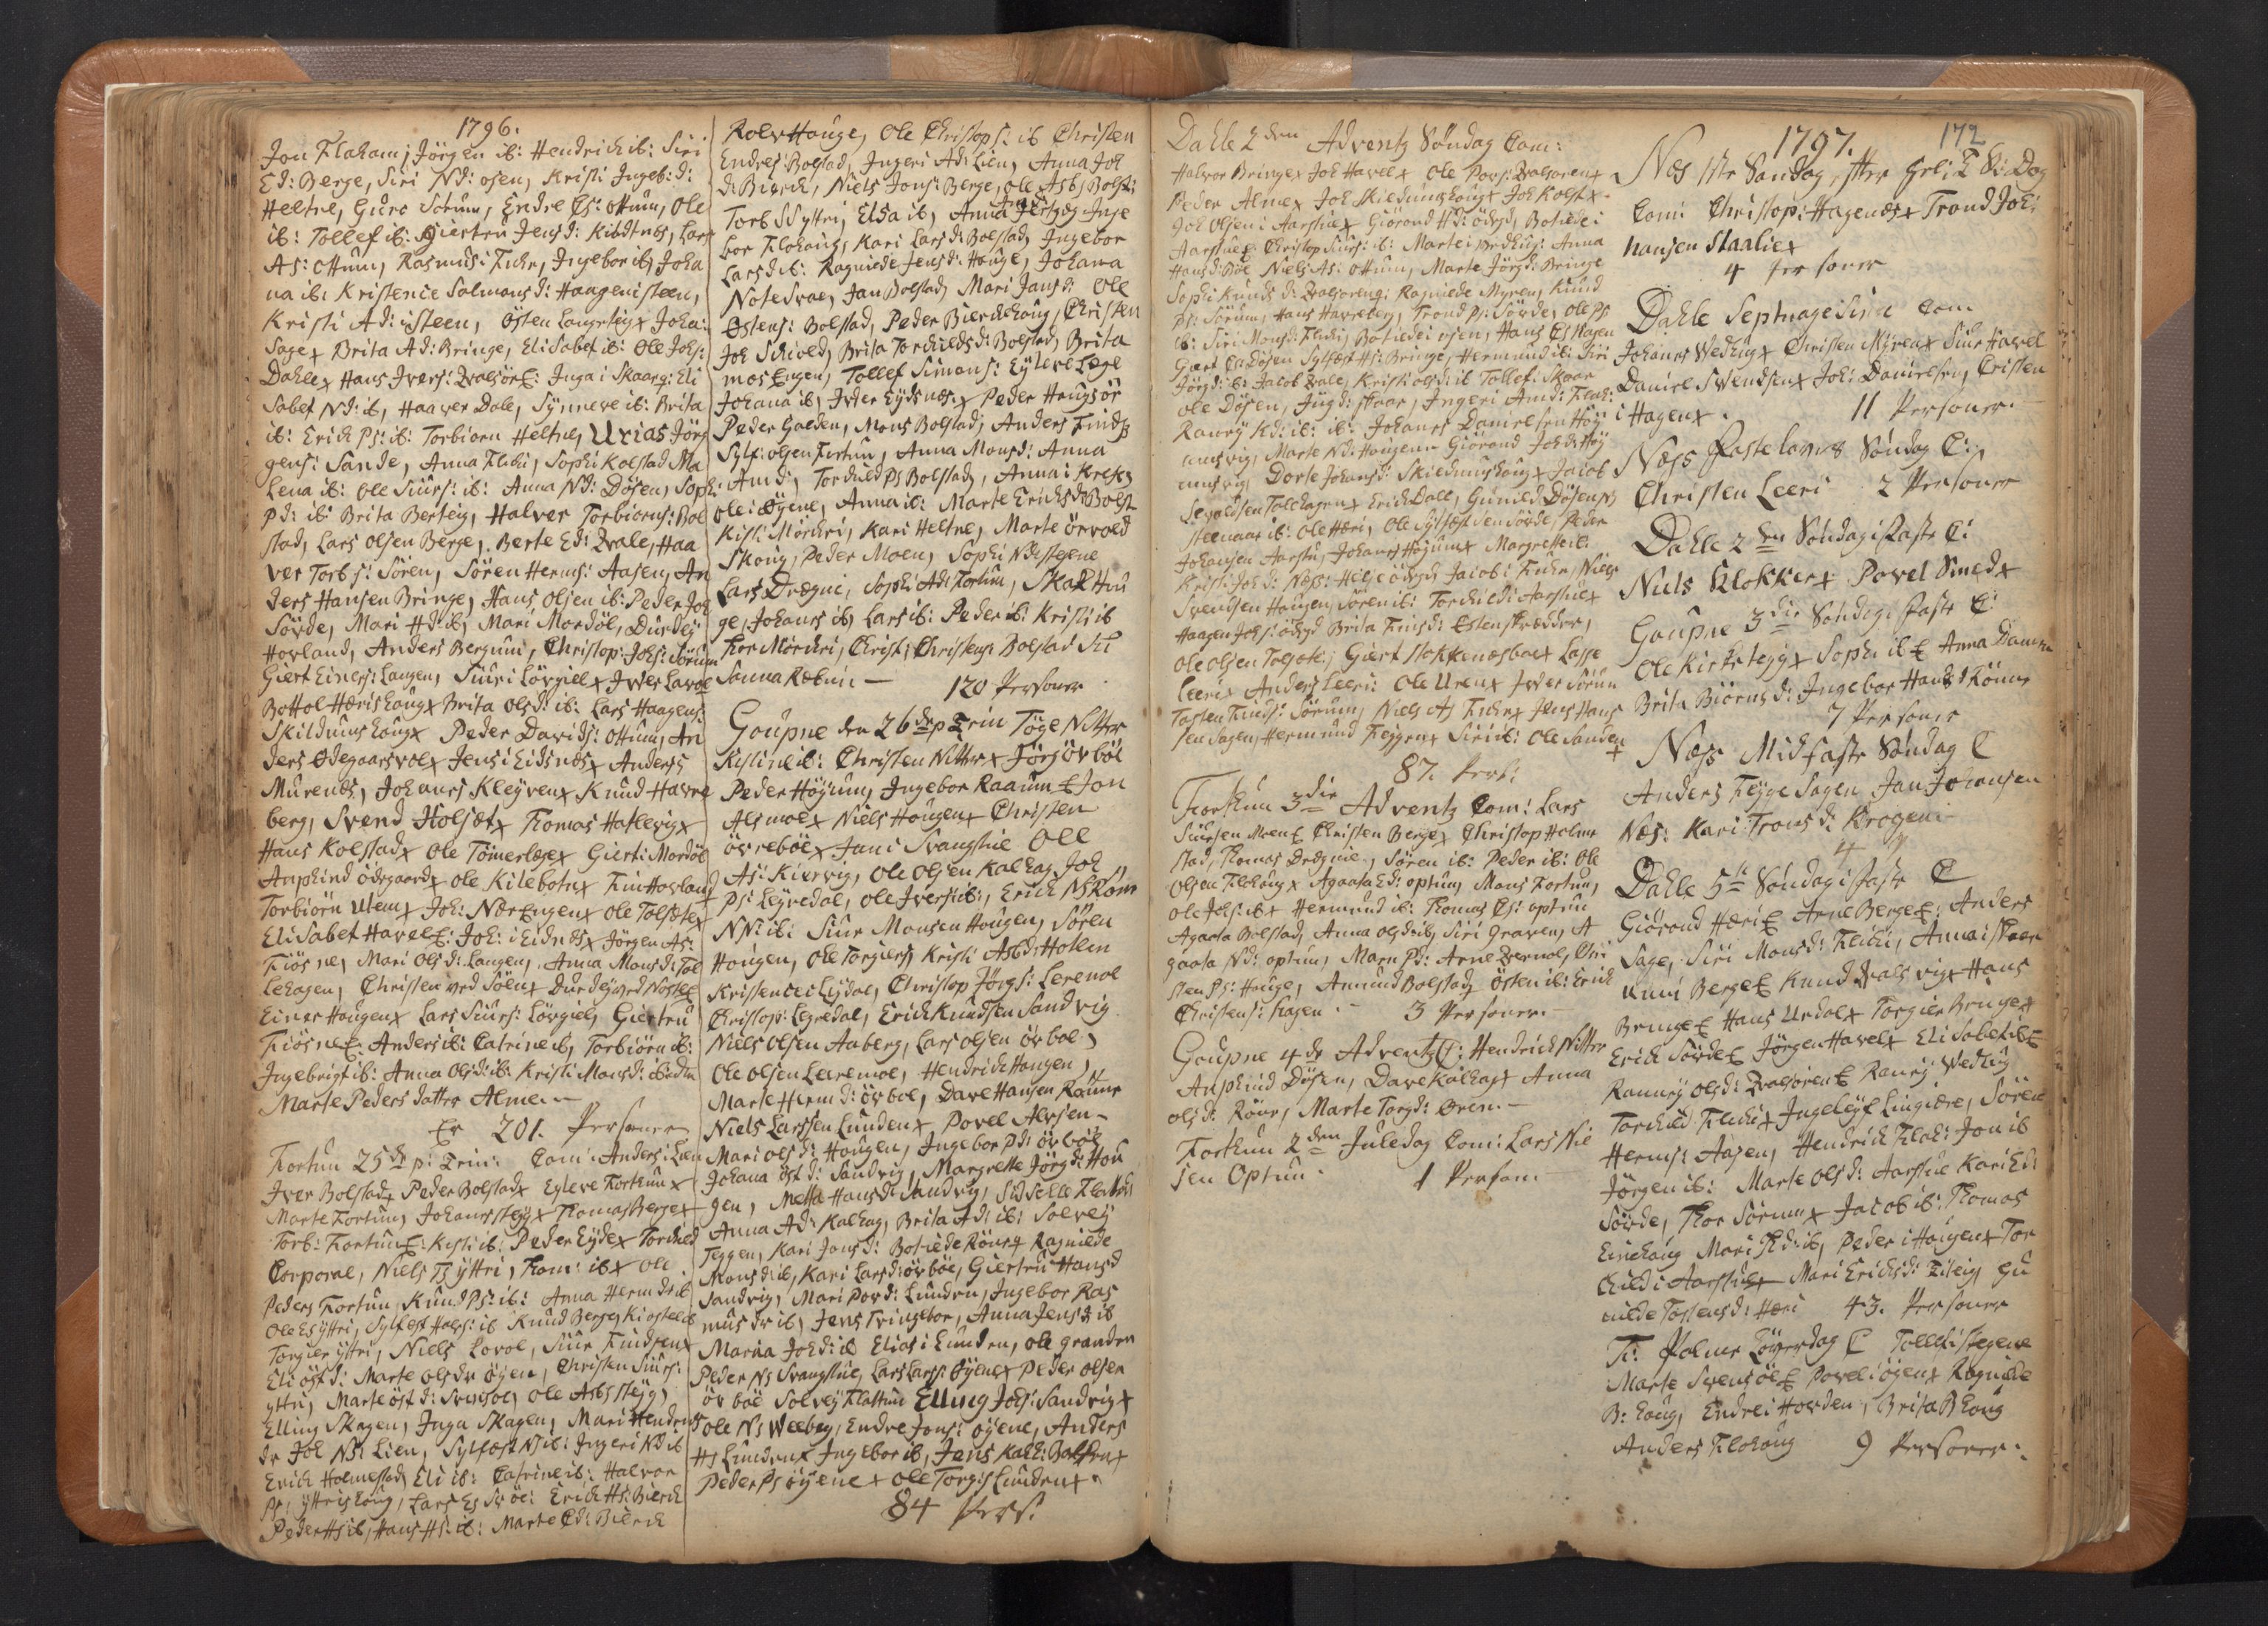 1796.
Jon Flaham, Jörgen ib: Hendrich ib: Siri
Ed: Berge, Siri Nd: osen, Kristi Ingeb: d:
Heltne, Guro Sorum, Endre Es: ottum, Ole
ib: Tollef ib: Giertru Jensd: Kibdtnes, Lars
As: ottum, Rasmus i Fuhr, Ingebor ib, Joha
na ib: Kristence Salmonsd: Haugen i steen,
Kristi Ad: i steen, östen Langeteig x Joha:
Sage x Brita Ad: Bringe, Elisabet ib: Ole Johs:
Dahle x Hans Ivers: Qvalsör E: Inga i Skaarg: Eli
Sabet Nd: ib, Haaver Dale, Synneve ib: Brita
ib: Erich Ps: ib: Torbiorn Heltne, Urias Jörg
gens: Sande, Anna Flahi, Sophi Kolstad Ma
Lena ib: Ole Siurs: ib: Anna Nd: Dösen, Soph:
Pd: ib: Brita Berteig, Halver Torbiorns: Bol
stad, Lars Olsen Berge, Berte Ed: Qvale, Haa
ver Torbs: Sören, Sören Herms: Aasen, An
ders Hansen Bringe, Hans Olsen ib: Peder Joh
Sövde, Mari Hd ib, Mari Mordöl, Durdey
Hovland, Anders Bergum, Christop: Johs: Sörum
Giert Einers: Langen, Siuri Lövgiel x Iver Lavoe
Bottol Hæris Houg x Brita ols d: ib: Lars Haagens:
Skildums Houg x Peder Davids: ottum, An
ders Ødegaarsvol x Jens i Eidsnæs x Anders
Murenæs, Johanes Kleyven x Knud Havre
berg, Svend Holsæt x Thomas Hatlevig x
Hans Kolstad x Ole Tömerlege x Giert i Mordöl
Anphind ödegaard x Ole Kilebotn x Fin Hovland
Torbiörn Uten x Joh: NærEngen x Ole Tolsæte x
Elisabet Havel E: Joh: i Eidnæs x Jörgen As:
Fiösne, Mari Ols d: Langen, Anna Mons d: Tol
lehagen, Christen ved Söen x Durdey ved Nostel
Einer Hougen x Lars Siurs: Lövgiel, Giertru
Fiösne E: Anders ib: Catrine ib, Torbiörn ib:
Ingebrigt ib: Anna Ols d: ib: Kristi Mons d: ib
Marte Peders datter Alme.
Er 201. Personer
Fortun 25de p: Trin: Com: Anders i Lien
Iver Bolstad x Peder Bolstad x Eyleve Fortun x
Marte Fortun, Johanes stegg x Thomas Berge x
Torb: Fortun E: Kisti ib: Peder Eyde x Torchild
Corporal, Niels Ps yttri, Thom: ib x ole
Peders Fortun, Knud Ps: ib: Anna Herm dr ib
Ole Es yttri, Sylfest Hals: ib Knud Berge,
Torgier yttri, Niels Lovol, Siur Findsen x
Eli öst d: Marte ols dr öyene, Christen Siurs:
yttri, Marte öst d: Svensöe, ole Asbs steyg,
Elling Skagen, Inga Skagen, Mari Hendrichs
dr Joh Ns: Lien, Sylfest N ib: Ingeri Nd ib
Erich Holmestad, Eli ib: Catrine ib: Halvor
Ps: yttrishoug, Lars Es Svöe: Erich Hs: Bierch
Peder Hs ib, Hans Hs: ib: Marte Ed: Bierch
Rolv Hauge, Ole Christops: ib Christen
Endres: Bolstad, Ingeri Ad: Lien, Anna Joh
d: Bierch, Niels Jons: Berge, Ole Asbs Bolst:
Torb S Syttri, Elsa ib, Anna Inge
bor Flohaug, Kari Lars d: Bolstad, Ingebor
Lars d ib: Ragnilde Jens d: Houge, Johana
Note Svae, Jan Bolstad, Mari Jans d: Ole
Östens: Bolstad, Peder Bierchehoug, Christen
Joh Schiold, Brita Torchilds d: Bolstad, Brita
mos Engen, Tollef Simons: Eyleve Lege
Johana ib, Iver Eydsnæs x Peder Haugsör
Peder Galden, Mons Bolstad, Anders Finds
Sylf: olsen Fortun, Anna Mons d: Anna
Am d:, Torchild Ps Bolstad, Anna i Kreken
Ole i öyene, Anna ib: Marte Erichs dr Bolst
Kisti Mörchri, Kari Heltne, Marte örvold
Skoug, Peder Moen, Sophi Nd: stegene
Lars Drægni, Sophi Ad: Fortun, Skat Hou
ge, Johanes ib, Lars ib: Peder ib: Kristi ib
Thor Mörchri, Christ: Christens: Bolstad
Sanna Rebni — 120 Personer
Goupne den 26de p Trin Töge Nitter
Kistine ib: Christen Nitter x Jörg örböl
Peder Höyum, Ingebor Raaum E Jon
Alsmoe x Niels Hougen x Christen
övreböe x Jan i Svangstue Ole
As: Kiervig, Ole Olsen Kalhag, Joh
Ps: Leyredal, Ole Ivers ib:, Erich Ns Röne
NN: ib: Siur Monsen Hougen, Sören
Hougen, Ole Torgiers, Kristi Asb d: Holen
Kristence i Lydal, Christop Jörgs: Leremoe
Christop: Legredal, Erich Knudsen Sandvig
Niels Olsen Aaberg, Lars Olsen örboe,
Ole Olsen Leeremoe, Hendrich Hougen,
Marte Herm d: örboe, Dave Hansen Röune
Niels Larssen Lunden x Povel Alvsen-
Mari ols d: Hougen, Ingebor Pd: örböe
Johana öst d: Sandvig, Margrette Jörg d: Hou
gen, Metta Hans d: Sandvig, Sidselle Flattun
Anna Ad: Kalhag, Brita Ad: ib: Solvey
Teggen, Kari Jons d: Botilde Röne x Ragnilde
Mons d: ib, Kari Lars d: örböe, Giertru Hansd
Sandvig, Mari Pov d: Lunden, Ingebor Ras
mus dr ib, Jens Tringebor, Anna Jens d: ib
Marna Joh d: ib Elias i Lunden, Ole granden
Peder Ns Svangstue, Lars Larss: öyene x Peder olsen
ör böe Solvey Flattun Elling Johs: Sandvig x
Ole Ns Weeberg, Endre Jons: öyene, Anders
Hs Lunden x Ingebor ib, Jens Kalh: Bolsten x
Peder Ps öyene x Ole Torgis Lunden x
84 Pers:
Dahle 2den Adventz Söndag Com:
Halvor Bringe x Joh Havel x Ole Pors: Qvalsören x
Peder Alme x Joh Skieldumshoug x Joh Kolst x
Joh Olsen i Aarstue x Giörand Hd: ödegd, Botilde i
Aarstue E Christop Siurs: ib: Marte i Anna
Hans d: Böe Niels As: ottum, Marte Jörg d: Bringe
Sophi Knuds d: Qvalsöreng: Ragnilde Myren, Knud
Ps: Sörum, Hans Havreberg, Trond Ps: Sövde, Ole Ps
ib: Siri Mons d: Flahi, Botilde i osen, Hans Es Hagen
Giert Dösen Sylfest Hs: Bringe, Hermund ib: Siri
Jörg d: ib: Jacob Qvale, Kristi ols d: ib Tollef: Skaar
Ole Dösen, Ing d: skaar, Ingeri Am d: Flah:
Ranvy Kd: ib: ib: Johanes Danielsen Höy
umsvig, Marte Nd: Hougene Giörand Joh d: Höy
umsvig, Dorte Johans d: Skildumshoug x Jacob
Sevaldsen Tolehagen x Erich Dale, Gunild Dösen
Steenaar ib: Ole Hæri, Ole Sylfæstsen Sövde, Peder
Johansen Aarstu, Johanes Höyum x Margrette ib:
Kristi Joh d: Næss: Helge ödegd, Jacob i Fuhr, Niels
Svendsen Hougen, Sören ib: Torchild i Aarstue x
Haagen Johs: ödegd Brita Finds d: Östen skredder,
Ole Olsen Tolsæte, Giert Stokkenæsbae x Lasse
Leeri x Anders Leeri: Ole Uren x Iver Sörum
Tosten Finds: Sörum, Niels As Fuhr x Jens Hans
sen Sagen, Hermund Teggen x Siri ib: Ole Sanden
87. Pers:
Forthun 3die Adventz Com: Lars
Siursen Moen E Christen Berge x Christop Holme
stad, Thomas Drægnie, Sören ib: Peder ib: Ole
Olsen Flohoug x Agaata Ed: optun, Mons Fortun,
Ole Johs: ib x Hermund ib: Thomas Es: optun
Agaata Bolstad, Anna ols d ib, Siri Graven, A
gaata Nd: optun, Marn Pd: Arne Qvernol, Chri
sten Ps: Hauge, Amund Bolstad x östen ib: Erich
Christens: Skagen. 3 Personer.
Goupne 4de Adventz C: Hendrich Nitter
Anphind Dösen, Dave Kalhag x Anna
ols d: Röne, Marte Torg d: Øren.
Forthun 2den Juledag Com: Lars Nie
sen Optun. 1 Person.
172
1797.
Næs 1ste Söndag efter Hel: 3 K: Dag
Com: Christop: Hagenæs x Trond Joh:
hansen Staalie x
4 Personer
Dahle Septuagesima Com
Johanes Wedhug x Christen Myren x Siur Havel
Daniel Svendsen x Joh: Danielsen, Cristen
i Hagen x. 11 Personer.
Næss Fastelavns Söndag C:
Christen Leeri 2 Personer
Dahle 2den Söndag i Faste C:
Niels Klokker x Povel Smed x
Goupne 3die Söndag i Faste C:
Ole Kirketegg x Sophi ib E Anna Dam
Brita Biörns d: Ingebor Hans d Röne
7 Personer
Næss Midfaste Söndag C
Anders Flyge Sagen Jan Johansen
Næs: Kari Trons d: Krogen
4
Dahle 5te Söndag i Faste C
Giörand Hæri E Arne Berge E: Anders
Sage, Siri Mons d: Flahi, Anna i Skaar
Unni Berge E Knud Qvalsvig x Hans
Bringe E Hans Urdal x Torgier Bringe x
Erich Sövde E Jörgen Havel x Elisabet ib E
Ranvy ols d: Qvalsören E Ranvy Wedhug
Torchild Flahi x Ingeleyf Lingiære, Sören
Herms: Aasen, Hendrich Flah: Jon ib
Jörgen ib: Marte ols d: Aarstue Kari Ed:
Sövde, Thor Sörum x Jacob ib: Thomas
Einehoug Mari Pd: ib, Peder i Hougen x Tor
child i Aarstue x Mari Erichs d: Titeig, Gu
nilde Tostens d: Hæri 43. Personer
F: Palme Löverdag C Tollef i stegene
Marte Svensöe E Povel i öyen x Ragnilde
B: houg, Endre i Horden, Brita B houg
Anders Flohoug 9 Personer.